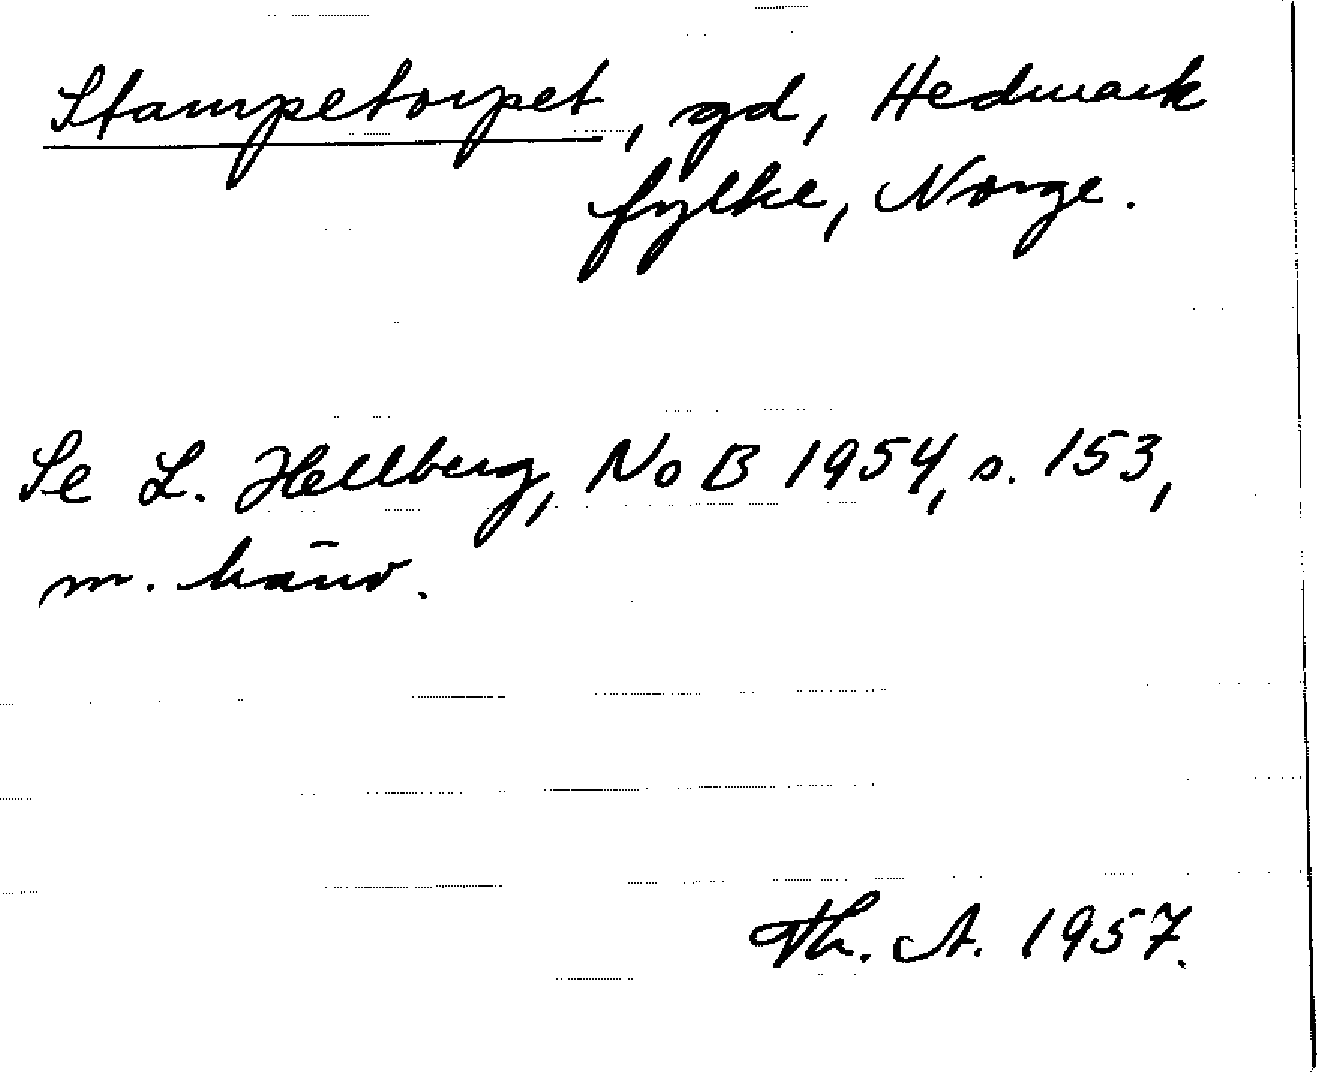 Stampetorpet, gd, Hedmark
fylke, Norge.
Se L. Hellberg, NoB 1954, s. 153,
m. hänv.
Th. A. 1957.